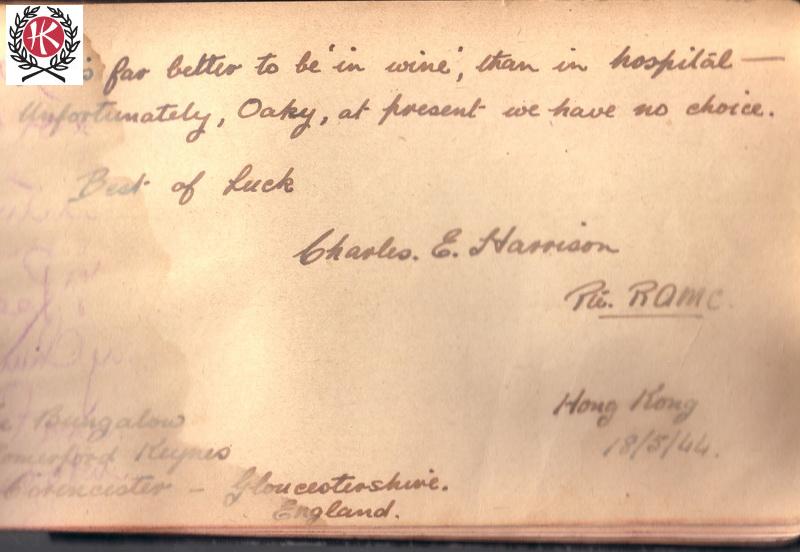 HK
far better to be 'in wine', than in hospital —
Unfortunately, Oaky, at present we have no choice.
Best of Luck
Charles. E. Harrison
Pte. RAMC.
Hong Kong
18/5/44.
Bungalow
Somerford Keynes
Cirencester – Gloucestershire.
England.